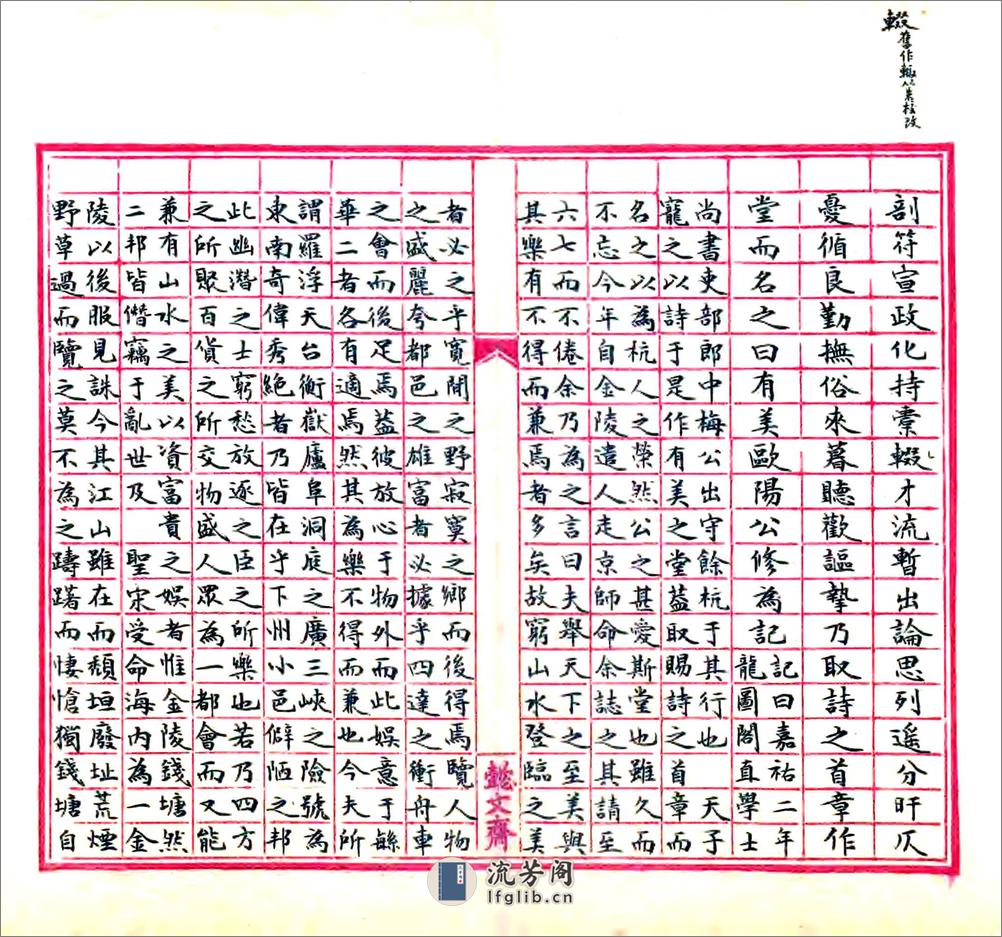 輟舊作輒以集校改
剖符宣政化持橐輟才流暫出論思列遥分旰仄
憂循良勤撫俗來暮聽歡謳摯乃取詩之首章作
堂而名之曰有美歐陽公修為記
記曰嘉祐二年
龍圖閣直學士
尚書吏部郎中梅公出守餘杭于其行也 天子
寵之以詩于是作有美之堂葢取賜詩之首章而
名之以為杭人之榮然公之甚愛斯堂也雖久而
不忘今年自金陵遣人走京師命余誌之其請至
六七而不倦余乃為之言曰夫舉天下之至美與
其樂有不得而兼焉者多矣故窮山水登臨之美
懿文齋
者必之乎寬閒之野寂寞之鄉而後得焉覽人物
之盛麗夸都邑之雄富者必據乎四達之衝舟車
之會而後足焉葢彼放心于物外而此娛意于繇
華二者各有適焉然其為樂不得而兼也今夫所
謂羅浮天台衡嶽廬阜洞庭之廣三峽之險號為
東南奇偉秀絶者乃皆在乎下州小邑僻陋之邦
此幽潛之士窮愁放逐之臣之所樂也若乃四方
之所聚百貨之所交物盛人眾為一都會而又能
兼有山水之美以資富貴之娛者惟金陵錢塘然
二邦皆僭竊于亂世及 聖宋受命海内為一金
陵以後服見誅今其江山雖在而頹垣廢址荒煙
野草過而覽之莫不為之躊躇而悽愴獨錢塘自
流芳阁
lfglib.cn